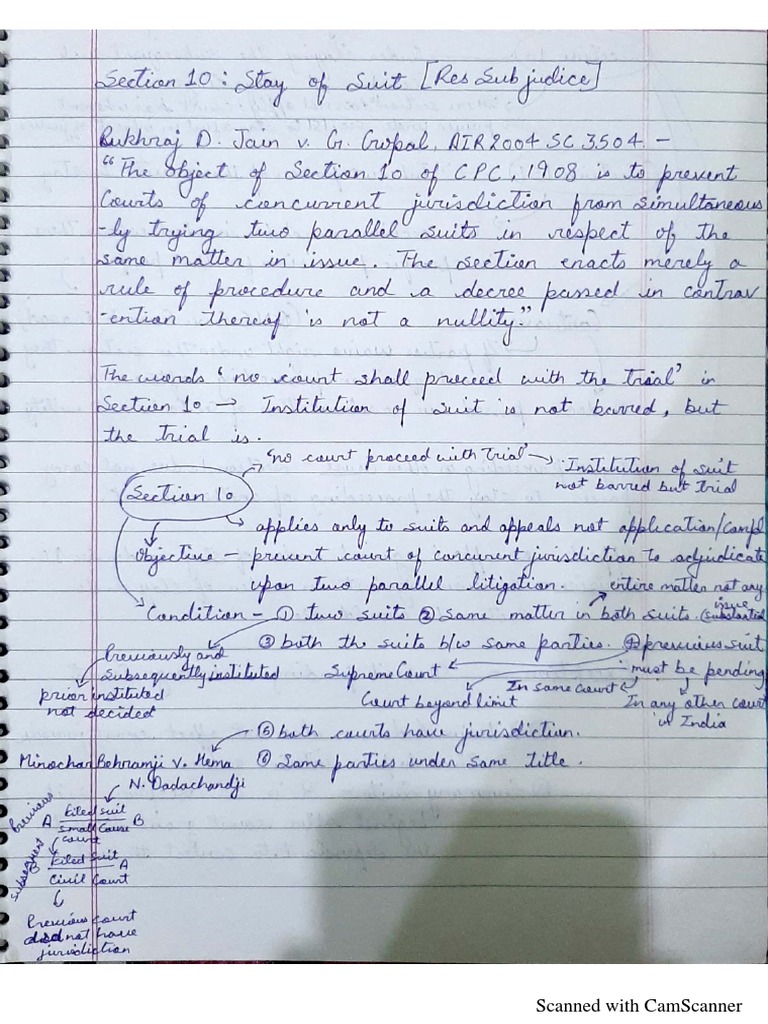 Section 10 : Stay of Suit [Res Subjudice]
Pukhraj D. Jain v. G. Gopal, AIR 2004 SC 3504. –
"The object of Section 10 of CPC, 1908 is to prevent
Courts of concurrent jurisdiction from simultaneous
-ly trying two parallel suits in respect of the
same matter in issue. The section enacts merely a
rule of procedure and a decree passed in contrav
-ention thereof is not a nullity."
The words 'no court shall proceed with the trial' in
Section 10 → Institution of suit is not barred, but
the trial is.
'no court proceed with Trial' → Institution of suit
not barred but Trial
Section 10
applies only to suits and appeals not application/Compl
Objective – prevent court of concurent jurisdiction to adjudicate
upon two parallel litigation.
entire matter not any
issue
(substantial
Condition – ① two suits ② same matter in both suits.
③ both the suits b/w same parties. ④ previous suit
must be pending
Previously and
subsequently instituted
prior instituted
not decided
Supreme Court
Court beyond limit
In same court
In any other court
in India
⑤ both courts have jurisdiction.
Minochar Behramji v. Hema
N. Dadachandji
⑥ Same parties under same title.
Previous
A Filed suit B
Small Cause
court
subsequent
B Filed suit A
Civil Court
Previous court
did not have
jurisdiction
Scanned with CamScanner